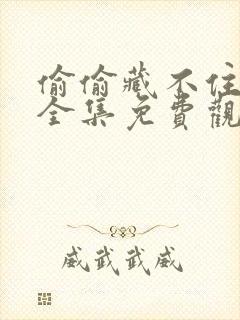 偷偷藏不住
全集免費觀
威武武威